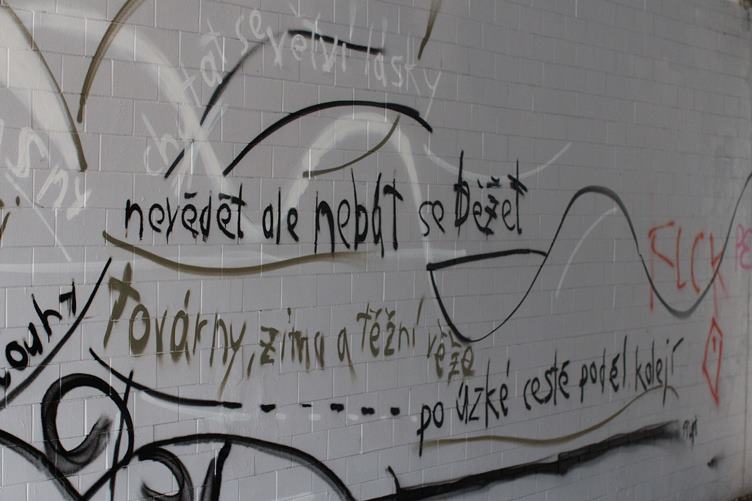 chytat se větví lásky
nevědět ale nebát se běžet
továrny, zima a těžní věže
po úzké cestě podél kolejí